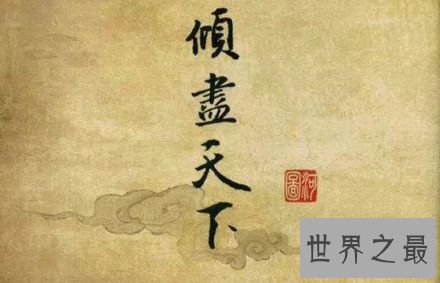 傾盡天下
河圖
世界之最